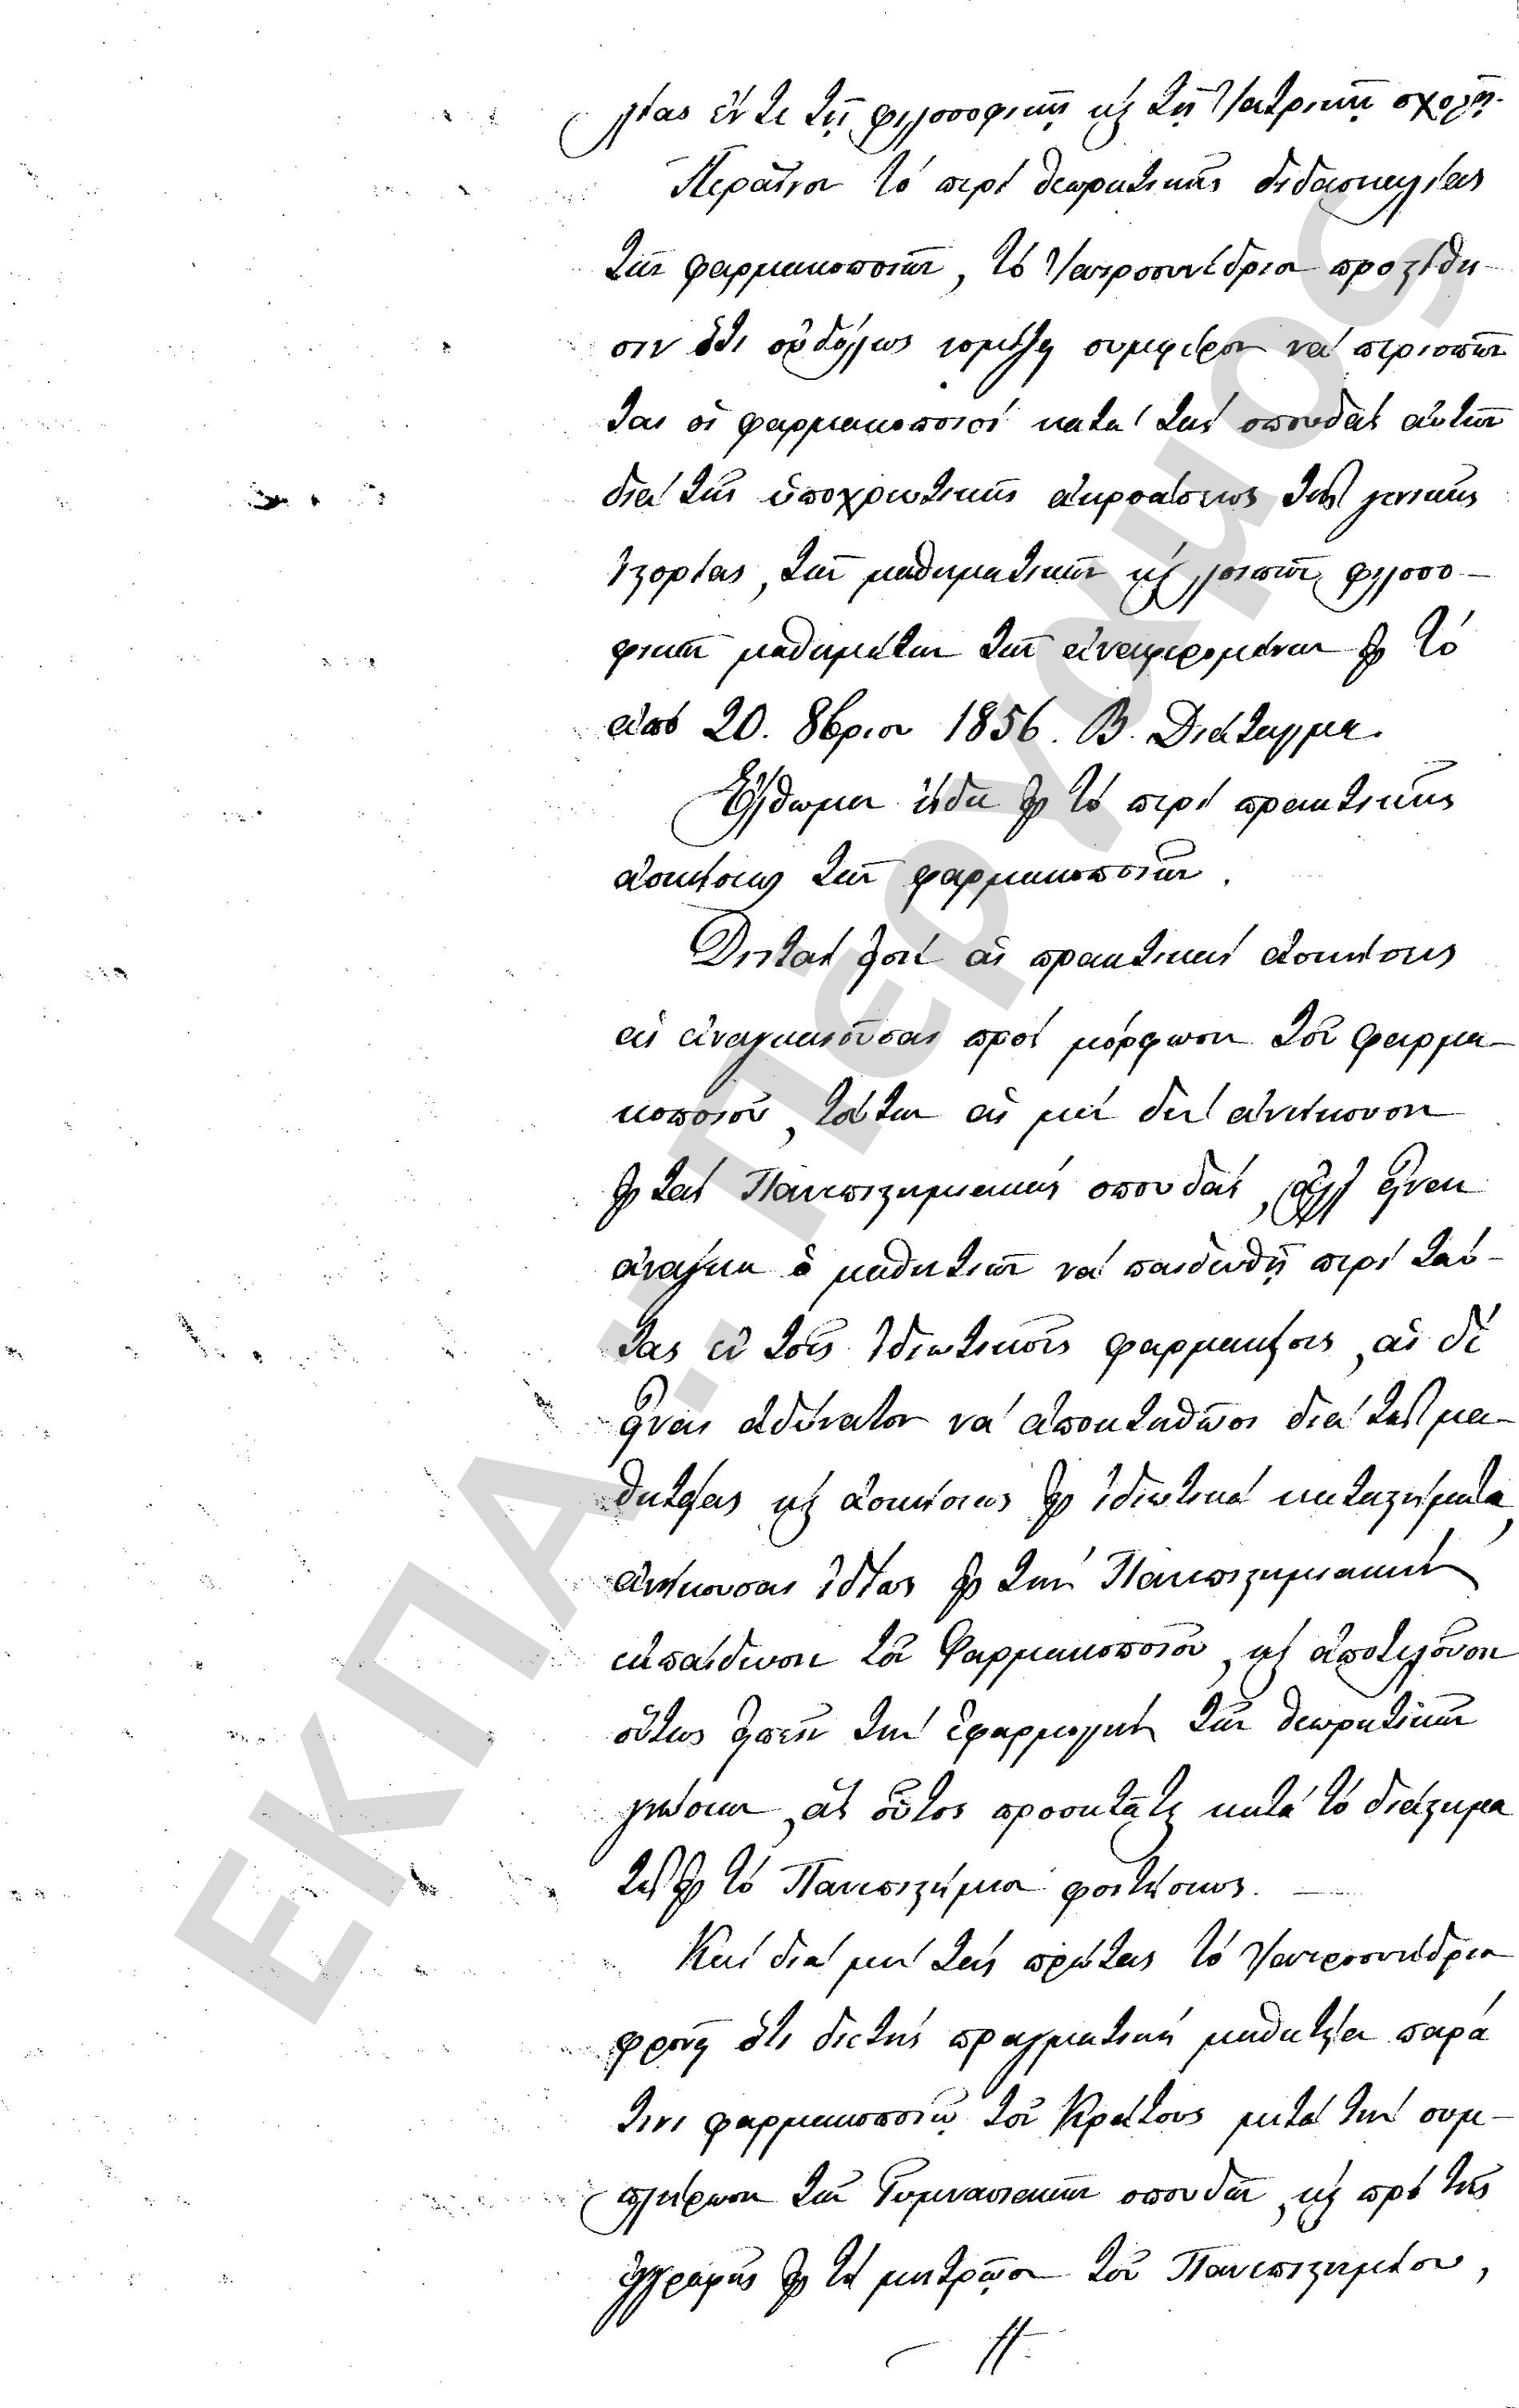 λίας ἔν τε τῇ φιλοσοφικῇ καὶ τῇ Ἰατρικῇ σχολῇ.
Περαῖνον τὸ περὶ θεωρητικῆς διδασκαλίας
τῶν φαρμακοποιῶν, τὸ Ἰατροσυνέδριον προστίθη-
σιν ὅτι οὐδόλως νομίζει συμφέρον νὰ περισπῶν
ται οἱ φαρμακοποιοὶ κατὰ τὰς σπουδὰς αὐτῶν
διὰ τῆς ὑποχρεωτικῆς ἀκροάσεως τῆς γενικῆς
ἱστορίας, τῶν μαθηματικῶν καὶ λοιπῶν φιλοσο-
φικῶν μαθημάτων τῶν ἀναφερομένων εἰς τὸ
ἀπὸ 20. 8βρίου 1856. Β. Διάταγμα.
Ἔλθωμεν ἤδη εἰς τὸ περὶ πρακτικῆς
ἀσκήσεως τῶν φαρμακοποιῶν.
Διτταὶ εἰσὶ αἱ πρακτικαὶ ἀσκήσεις
αἱ ἀναγκαιοῦσαι πρὸς μόρφωσιν τοῦ φαρμα-
κοποιοῦ, τούτων αἱ μὲν δὲν ἀνήκουσιν
εἰς τὰς Πανεπιστημιακὰς σπουδάς, ἀλλ' εἶναι
ἀνάγκη ὁ μαθητιῶν νὰ παιδευθῇ περὶ ταύ-
τας ἐν τοῖς ἰδιωτικοῖς φαρμακείοις, αἱ δὲ
εἶναι ἀδύνατον νὰ ἀποκτηθῶσι διὰ τῆς μα-
θητείας καὶ ἀσκήσεως εἰς ἰδιωτικὰ καταστήματα,
ἀνήκουσαι ἰδίως εἰς τὴν Πανεπιστημιακὴν
ἐκπαίδευσιν τοῦ Φαρμακοποιοῦ, καὶ ἀποτελοῦσιν
οὕτως εἰπεῖν τὴν ἐφαρμογὴν τῶν θεωρητικῶν
γνώσεων, ἃς οὗτος προσκτᾶται κατὰ τὸ διάστημα
τῆς εἰς τὸ Πανεπιστήμιον φοιτήσεως.
Καὶ διὰ μὲν τὰς πρώτας τὸ Ἰατροσυνέδριον
φρονεῖ ὅτι διετὴς πραγματικὴ μαθητεία παρά
τινι φαρμακοποιῷ τοῦ Κράτους μετὰ τὴν συμ-
πλήρωσιν τῶν Γυμνασιακῶν σπουδῶν, καὶ πρὸ τῆς
ἐγγραφῆς εἰς τὸ μητρῷον τοῦ Πανεπιστημίου,